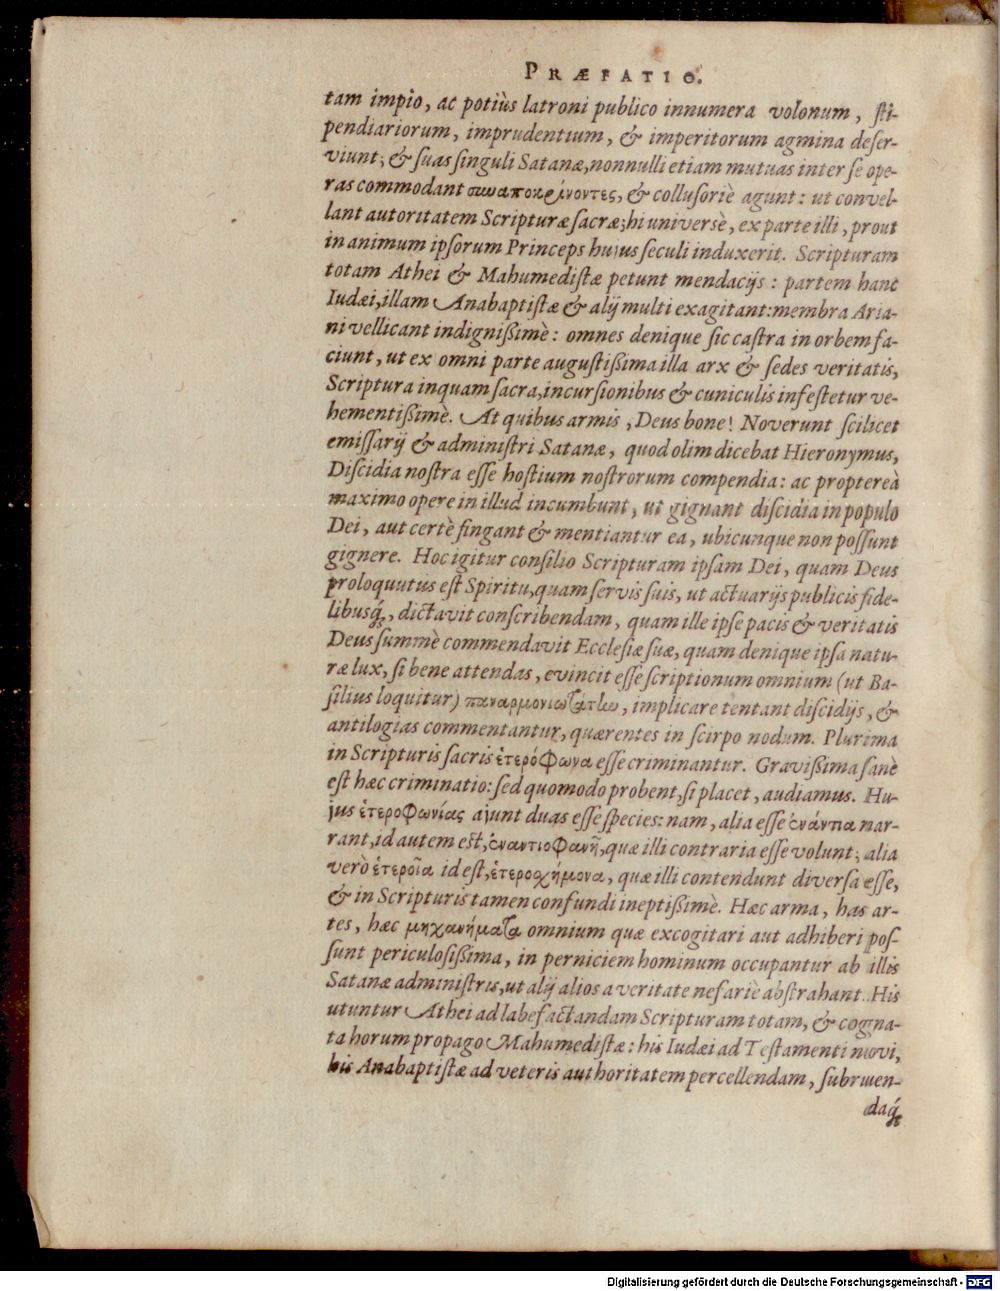 PRÆFATIO.
tam impio, ac potiùs latroni publico innumera volonum, sti-
pendiariorum, imprudentium, & imperitorum agmina deser-
viunt; & suas singuli Satanæ, nonnulli etiam mutuas inter se ope-
ras commodant συναποκρίνοντες, & collusoriè agunt: ut convel-
lant autoritatem Scripturæ sacræ; hi universè, ex parte illi, prout
in animum ipsorum Princeps hujus seculi induxerit. Scripturam
totam Athei & Mahumedistæ petunt mendacijs: partem hanc
Iudæi, illam Anabaptistæ & alij multi exagitant: membra Aria-
ni vellicant indignissimè: omnes denique sic castra in orbem fa-
ciunt, ut ex omni parte augustissima illa arx & sedes veritatis,
Scriptura inquam sacra, incursionibus & cuniculis infestetur ve-
hementissimè. At quibus armis, Deus bone! Noverunt scilicet
emissarij & administri Satanæ, quod olim dicebat Hieronymus,
Discidia nostra esse hostium nostrorum compendia: ac proptereà
maximo opere in illud incumbunt, ut gignant discidia in populo
Dei, aut certè fingant & mentiantur ea, ubicunque non possunt
gignere. Hoc igitur consilio Scripturam ipsam Dei, quam Deus
proloquutus est Spiritu, quam servis suis, ut actuarijs publicis fide-
libusq́;, dictavit conscribendam, quam ille ipse pacis & veritatis
Deus summè commendavit Ecclesiæ suæ, quam denique ipsa natu-
ræ lux, si bene attendas, evincit esse scriptionum omnium (ut Ba-
silius loquitur) παναρμονιωτάτην, implicare tentant discidijs, &
antilogias commentantur, quærentes in scirpo nodum. Plurima
in Scripturis sacris ἑτερόφωνα esse criminantur. Gravissima sanè
est hæc criminatio: sed quomodo probent, si placet, audiamus. Hu-
jus ἑτεροφωνίας ajunt duas esse species: nam, alia esse ἐνάντια nar-
rant, id autem est, ἐναντιοφανῆ, quæ illi contraria esse volunt; alia
verò ἑτεροῖα id est, ἑτεροχήμονα, quæ illi contendunt diversa esse,
& in Scripturis tamen confundi ineptissimè. Hæc arma, has ar-
tes, hæc μηχανήματα omnium quæ excogitari aut adhiberi pos-
sunt periculosissima, in perniciem hominum occupantur ab illis
Satanæ administris, ut alij alios a veritate nefariè abstrahant. His
utuntur Athei ad labefactandam Scripturam totam, & cogna-
ta horum propago Mahumedistæ: his Iudæi ad Testamenti novi,
his Anabaptistæ ad veteris authoritatem percellendam, subruen-
daq́;
Digitalisierung gefördert durch die Deutsche Forschungsgemeinschaft - DFG